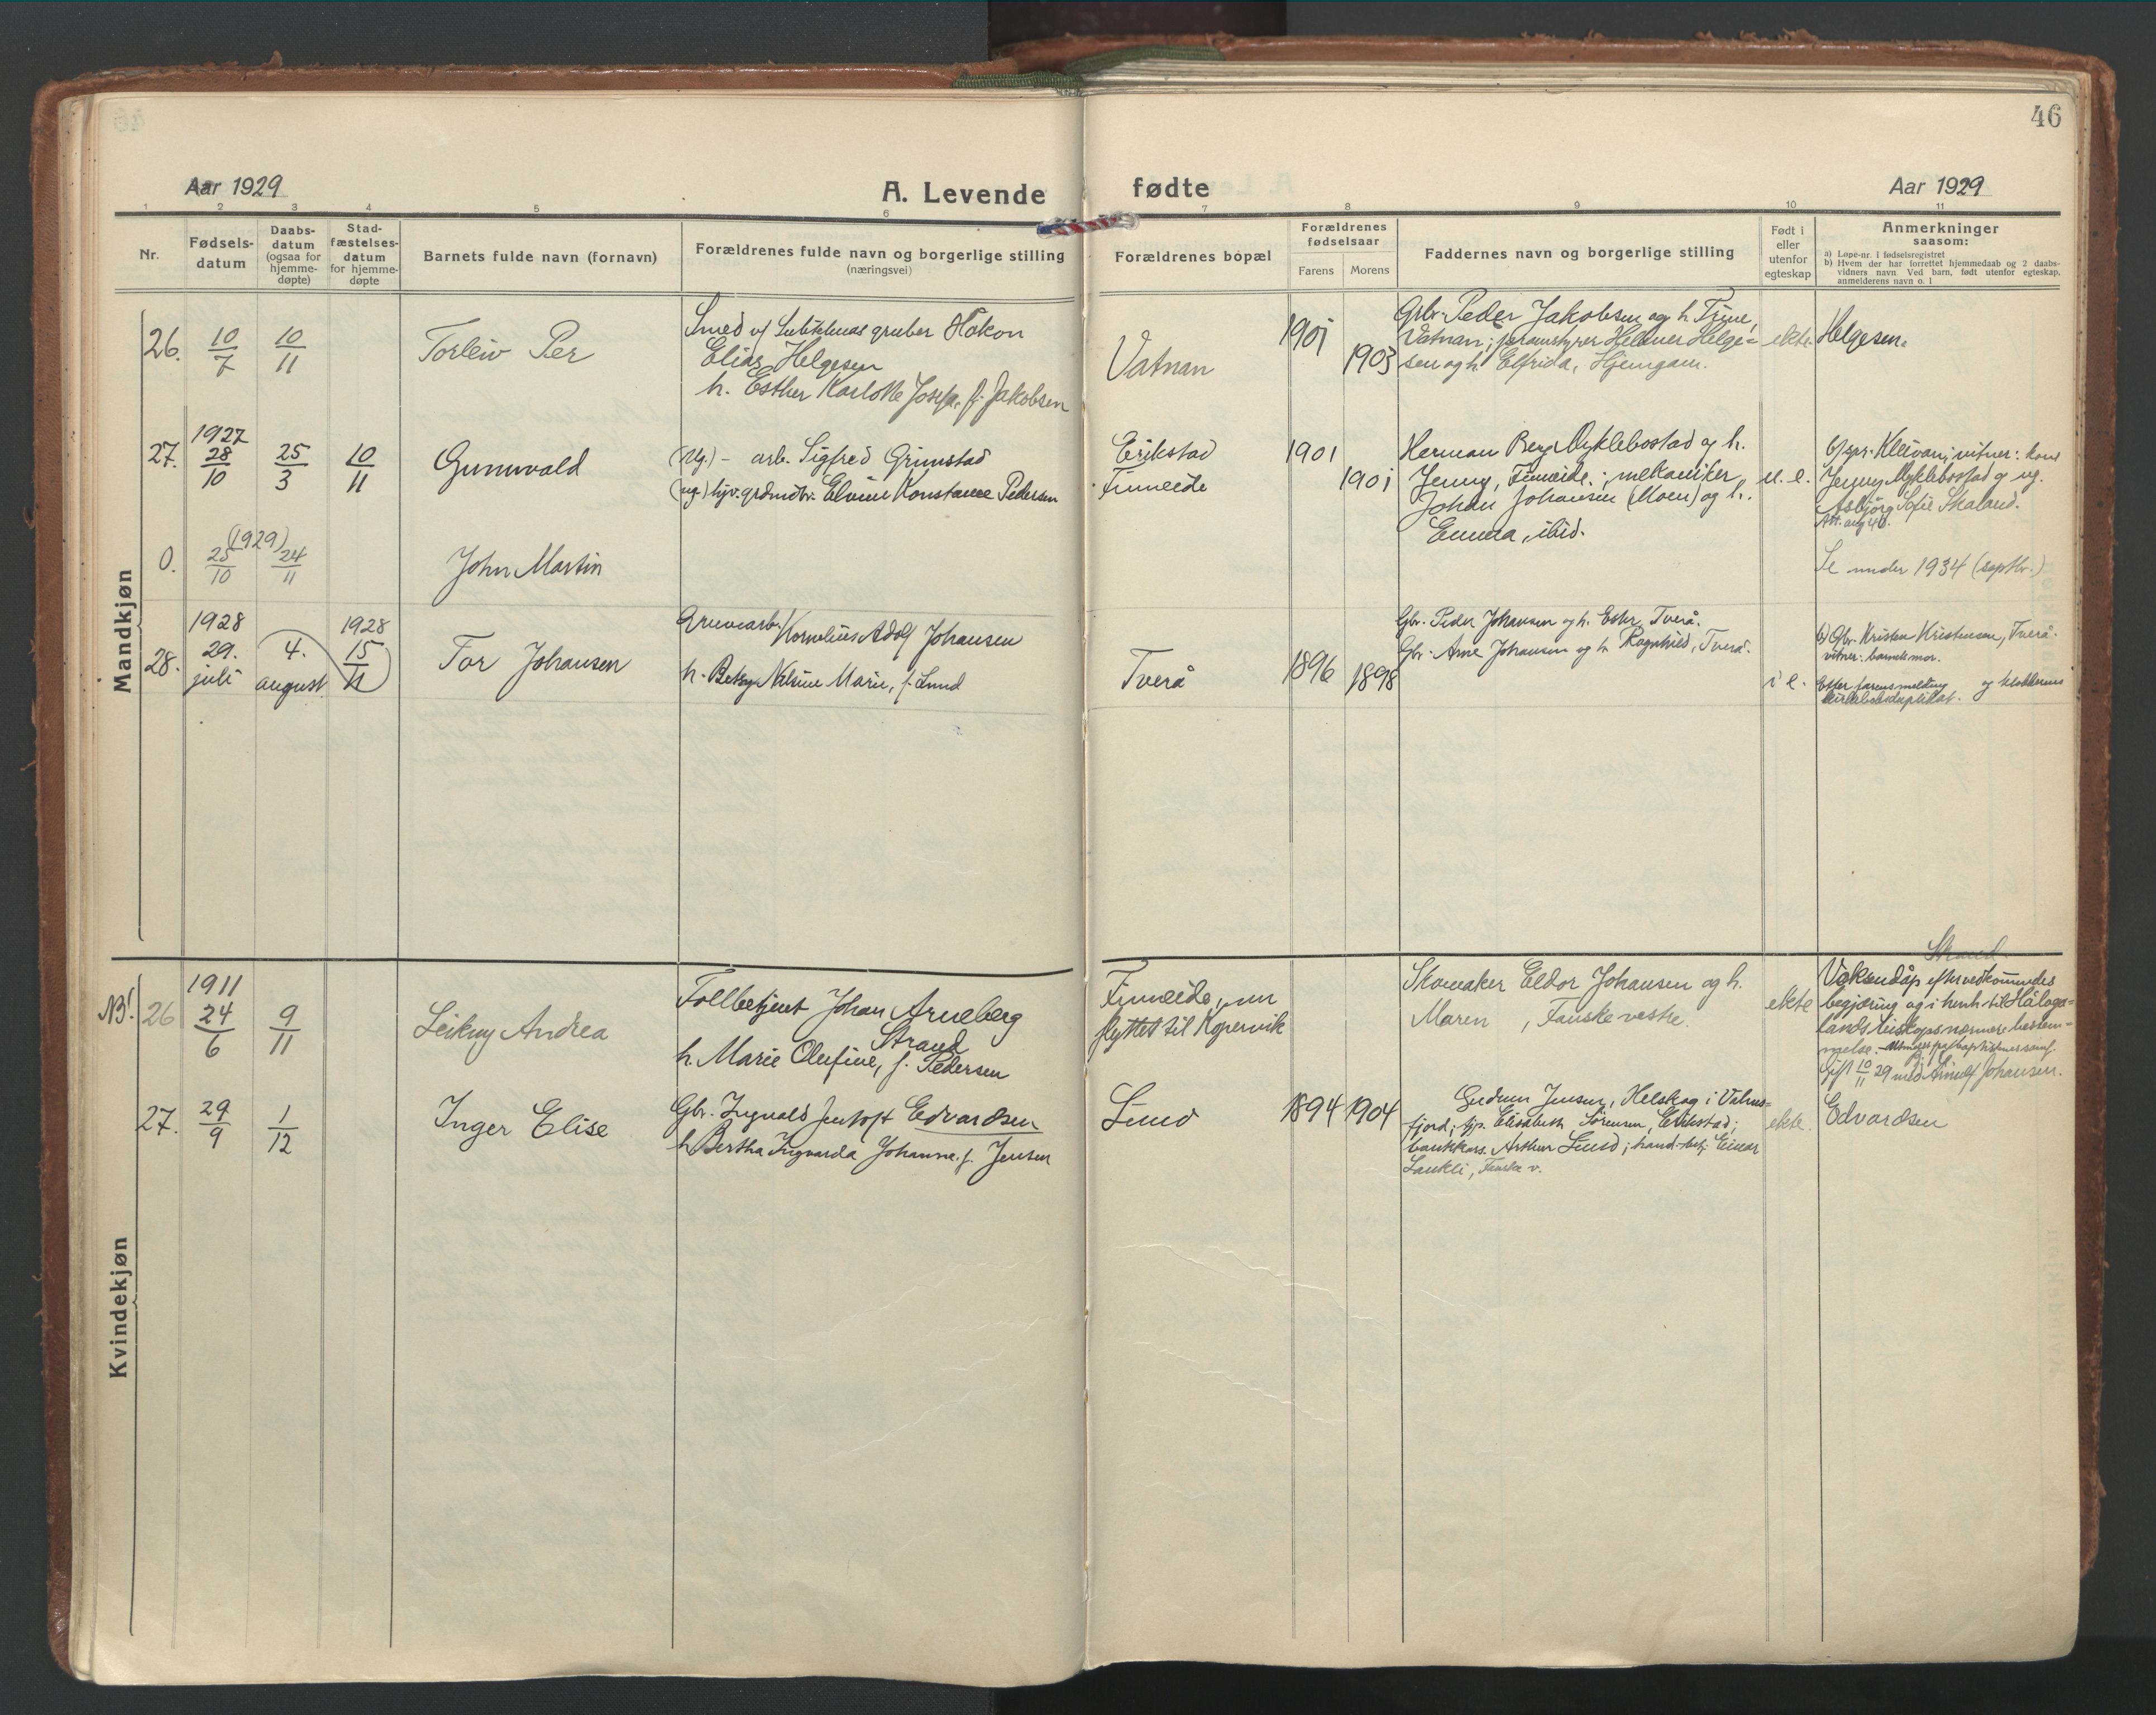 46
Aar 1929
A. Levende fødte
Aar 1929
1 2 3 4 5 6 7 8 9 10 11
Nr.
Fødsels-
datum
Daabs-
datum
(ogsaa for
hjemme-
døpte)
Stad-
fæstelses-
datum
for hjemme-
døpte
Barnets fulde navn (fornavn)
Forældrenes fulde navn og borgerlige stilling
(næringsvei)
Forældrenes bopæl
Forældrenes
fødselsaar
Farens Morens
Faddernes navn og borgerlige stilling
Født i
eller
utenfor
egteskap
Anmerkninger
saasom:
a) Løpe-nr. i fødselsregistret
b) Hvem der har forrettet hjemmedaab og 2 daabs-
vidners navn. Ved barn, født utenfor egteskap,
anmelderens navn o. l
Mandkjøn
26.
10/7
10/11
Torleiv Per
Smed v/ gruber Håkon
Elias Helgesen
h. Esther Karlotte Josefa, f. Jakobsen
Vatnan
1901
1903
Grbr. Peder Jakobsen og h. Trine,
Vatnan; Helmer Helge-
sen og h. Elfrida, Hjemgam.
ekte
Helgesen.
27.
1927
28/10
25/3
10/11
Gunnvald
(ug.) – arb. Sigfred Grimstad
(ug.) Elvine Konstance Pedersen
Erikstad
Finneide
1901
1901
Herman Berg Myklebostad og h.
Jenny, Finneide; mekaniker
Johan Johansen (Moen) og h.
Emma, ibid.
u. e.
vitner: kone
Jenny Myklebostad og ug.
Asbjörg Sofie Skaland.
0.
(1929)
25/10
24/11
John Martin
Se under 1934 (septbr.)
28.
1928
29.
juli
4.
august
1928
15/11
Tor Johansen
Gruvearb. Kornelius Adolf Johansen
h. Betsy Nelsine Marie, f. Lund
Tverå
1896 1898
Gbr. Peder Johansen og h. Ester, Tverå.
Gbr. Arne Johansen og h. Ragnhild, Tverå.
i e.
b) Gbr. Kristen Kristensen, Tverå.
vitner: barnets mor.
Efter farens melding og klokkerens
kirkeboksduplikat.
Kvindekjøn
NB!
26
1911
24/6
9/11
Leikny Andrea
Tollbetjent Johan Arneberg
Strand
h. Marie Olufine, f. Pedersen
Finneide, nu
flyttet til Kopervik
Skomaker Eldor Johansen og h.
Maren, Fauske vestre.
ekte
Strand.
Voksendåp efter vedkommendes
begjæring og i henh. til Håloga-
lands biskops nærmere bestem-
melse. –
gift 10/11 29 med Arnulf Johansen.
27.
29/9
1/12
Inger Elise
Gbr. Ingvald Jentoft Edvardsen
h. Bertha Ingvarda Johanne f. Jensen
Lund
1894 1904
Gudrun Jensen, Helskog i Valnes-
fjord; Elisabeth Sörensen, Erikstad;
bankkass. Arthur Lund; hand.betj. Einar
Lankli, Fauske v.
ekte.
Edvardsen